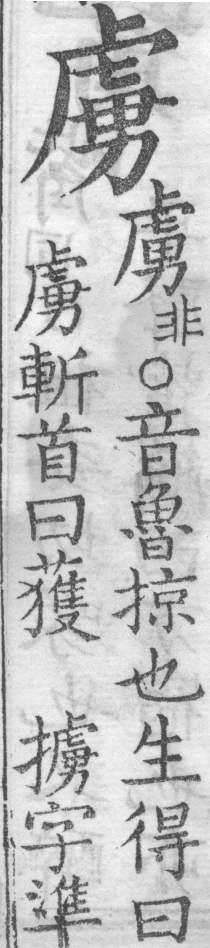 虜
虜非○音魯掠也生得曰
虜斬首曰獲 擄字準